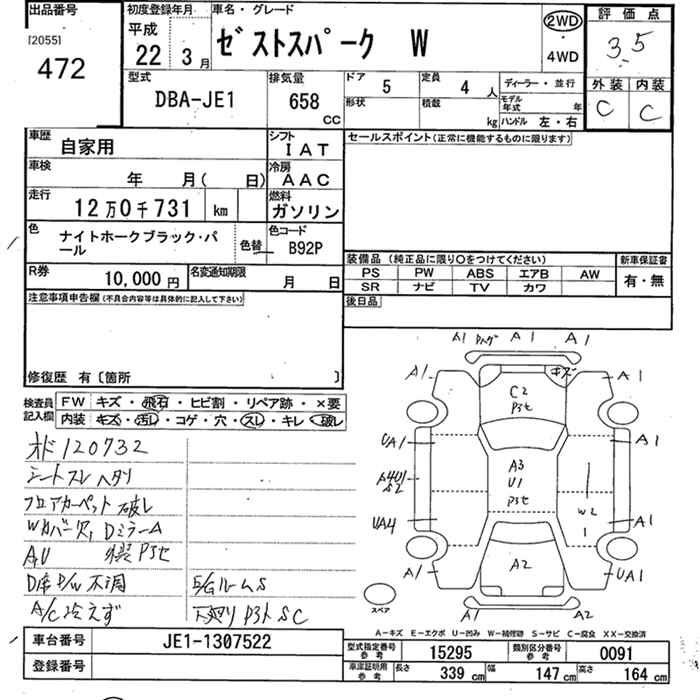 出品番号
[2055]
472
初度登録年月
平成
22 3月
車名・グレード
ゼストスパーク W
2WD
・
4WD
評価点
3.5
外装 内装
C C
型式
DBA-JE1
排気量
658 CC
ドア 5
形状
定員 4人
積載 kg
ディーラー・並行
モデル年式 年
ハンドル 左・右
車歴 自家用
シフト IAT
車検 年 月( 日)
冷房 AAC
走行 12万0千731 km
燃料 ガソリン
色 ナイトホークブラック・パール
色替
色コード B92P
R券 10,000円
名変通知期限 月 日
セールスポイント(正常に機能するものに限ります)
装備品(純正品に限り○をつけてください)
PS PW ABS エアB AW
SR ナビ TV カワ
新車保証書
有・無
後日品
注意事項申告欄(不具合内容等は具体的に記入して下さい)
修復歴 有〔箇所 〕
検査員記入欄
FW キズ・飛石・ヒビ割・リペア跡・×要
内装 キズ・汚レ・コゲ・穴・スレ・キレ・破レ
オド120732
シートスレ ヘタリ
フロアカーペット 破レ
Wカバー欠,DミラーA
AU
D席P/W不調
A/C冷えず
E/GルームS
下廻り
SC
A1 A1 A1
A1 キズ A1
C2
Pﾀﾋ
UA1 A1
A3
U1
S2
W2
UA4 A1
A1 A2 UA1
A1 A2
スペア
A-キズ E-エクボ U-凹み W-補修跡 S-サビ C-腐食 XX-交換済
車台番号 JE1-1307522
登録番号
型式指定番号 参考 15295
類別区分番号 参考 0091
車庫証明用 参考 長さ 339cm 幅 147cm 高さ 164cm